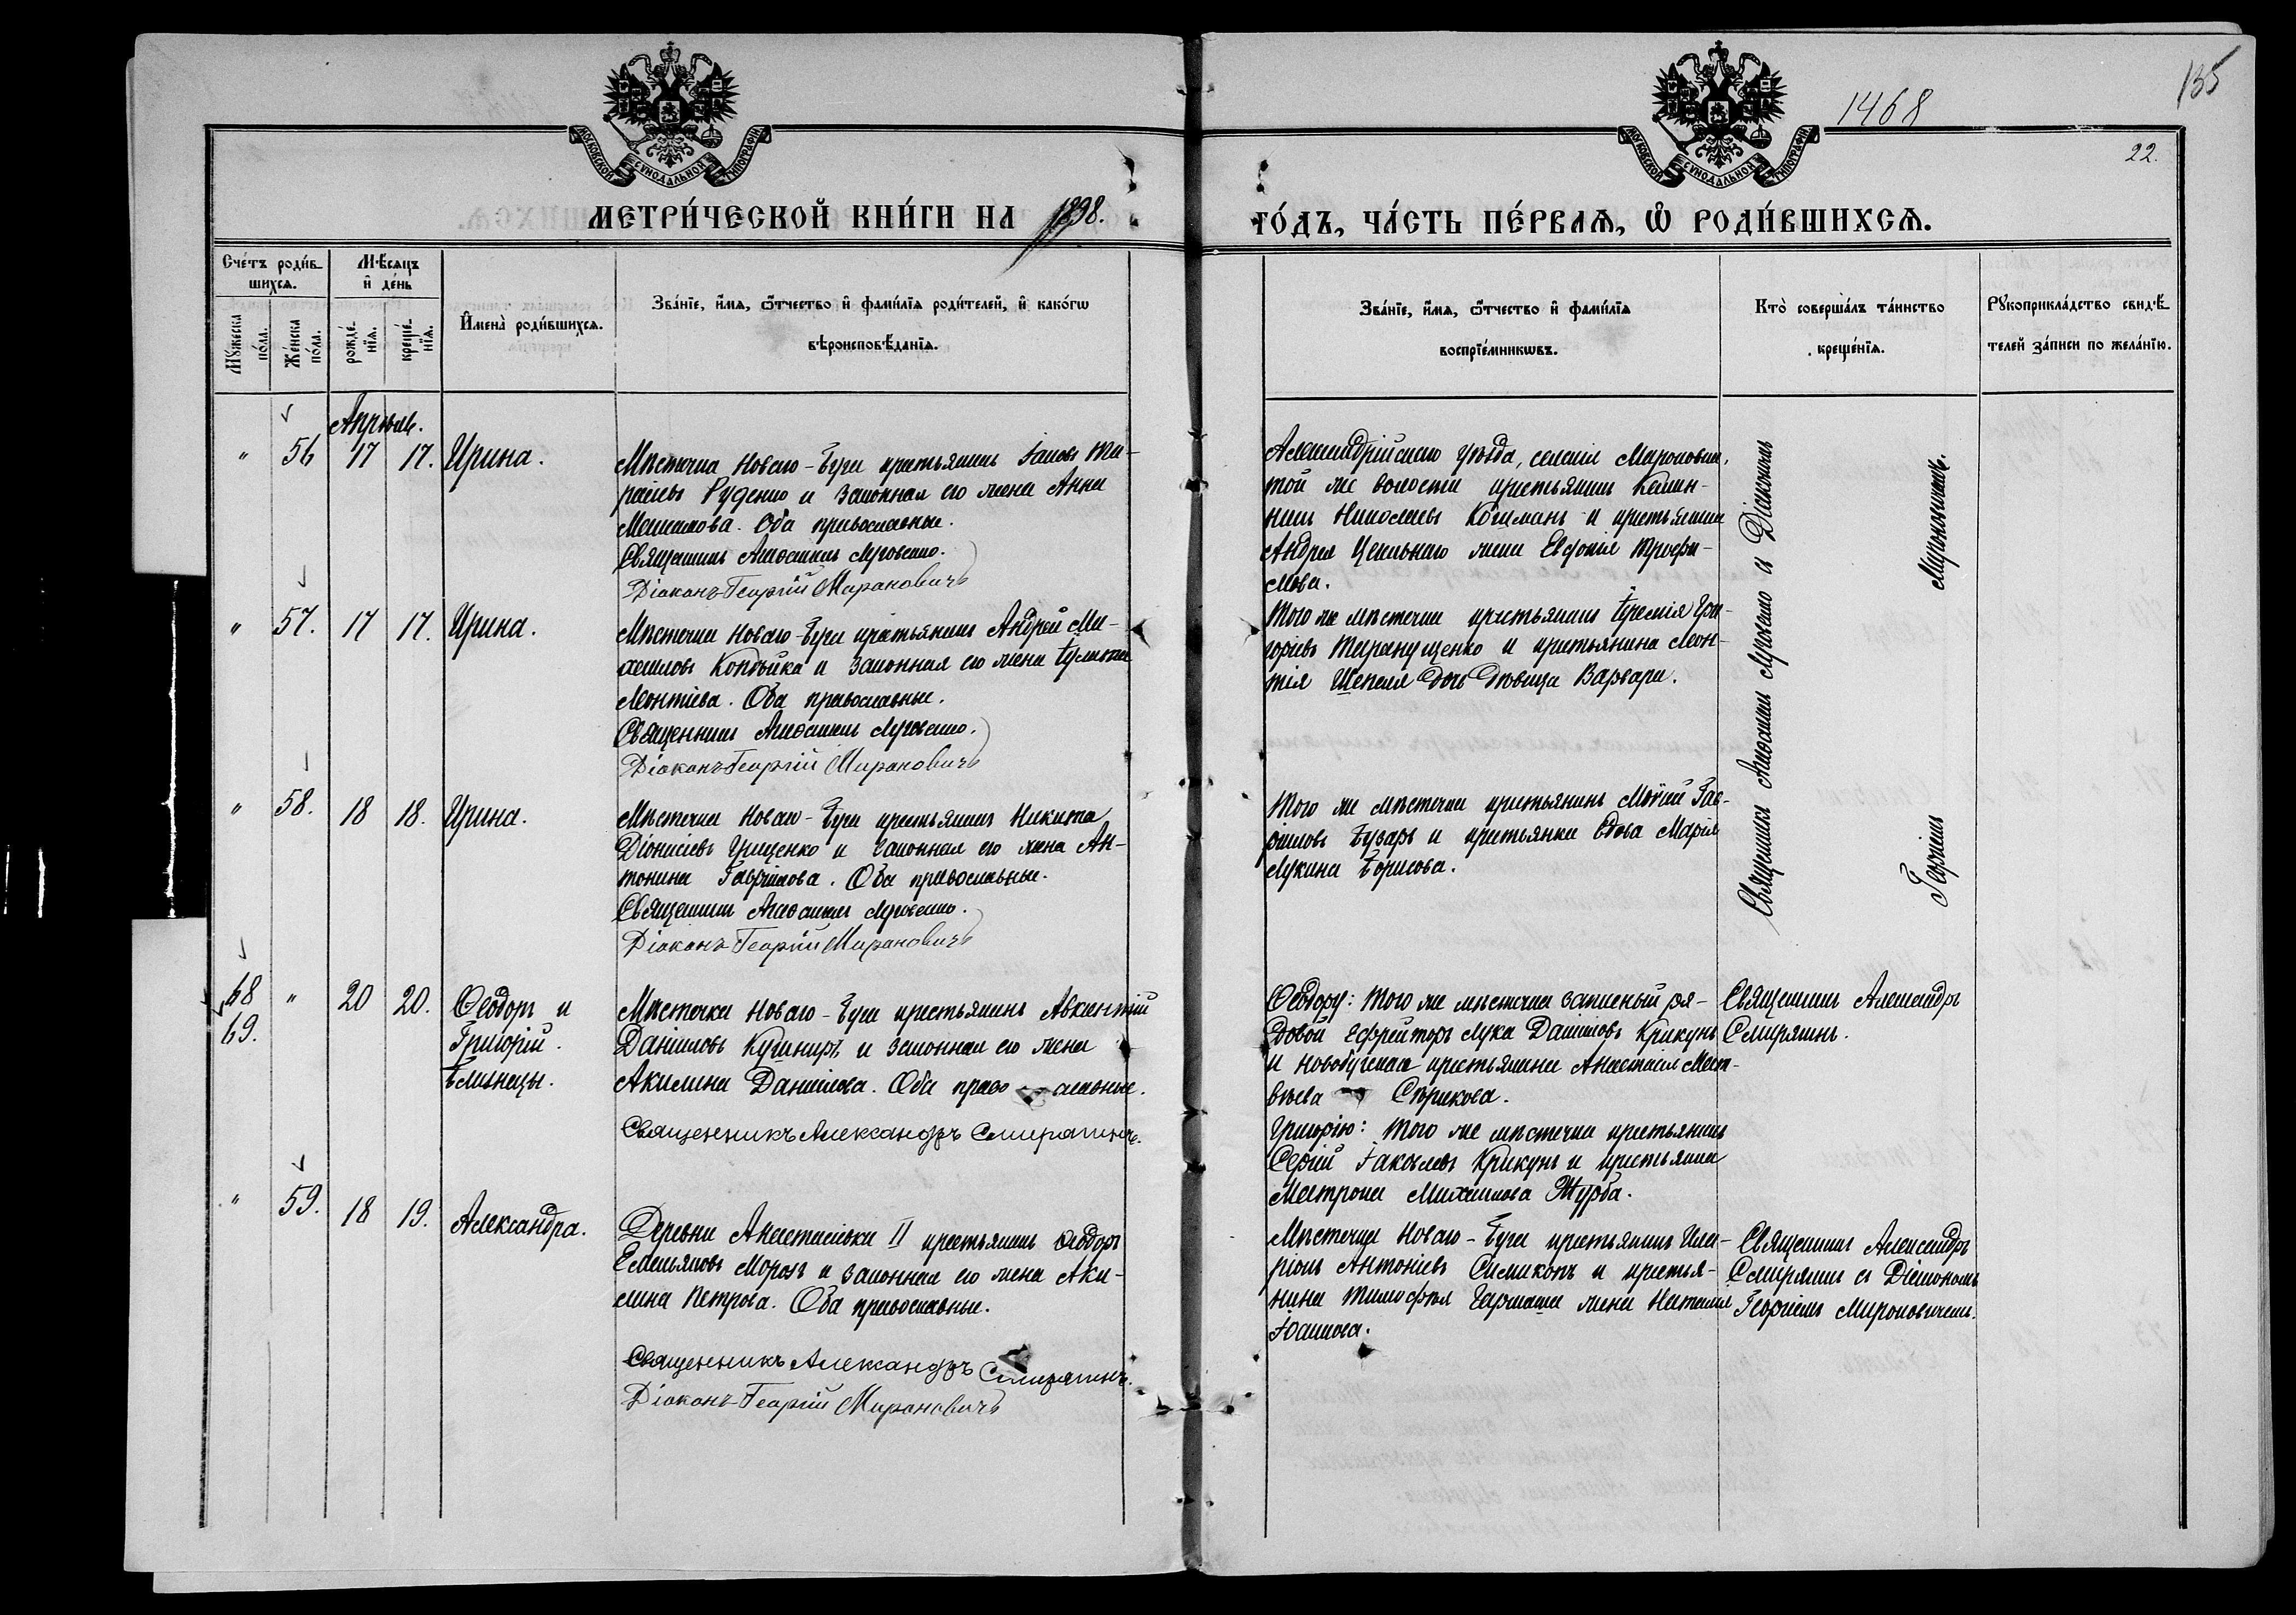 1468
135
22.
МОСКОВСКОЙ СУНОДАЛЬНОЙ ТИПОГРАФІИ
МОСКОВСКОЙ СУНОДАЛЬНОЙ ТИПОГРАФІИ
МЕТРИ́ЧЕСКОЙ КНИ́ГИ НА 1898.
ГО́ДЪ, ЧА́СТЬ ПЕ́РВАѦ, Ѡ҆ РОДИ́ВШИХСѦ.
Сче́тъ роди́в-
шихсѧ.
Мꙋ́жеска
по́ла.
Же́нска
по́ла.
Мѣ́сѧцъ
и҆ де́нь
рожде́-
нїѧ.
креще́-
нїѧ.
И҆мена̀ роди́вшихсѧ.
Зва́нїе, и҆́мѧ, ѻ҆́тчество и҆ фами́лїѧ роди́телей, и҆ како́гѡ
вѣроисповѣ́данїѧ.
Зва́нїе, и҆́мѧ, ѻ҆́тчество и҆ фами́лїѧ
воспрїе́мникѡвъ.
Кто̀ соверша́лъ та́инство
креще́нїѧ.
Рꙋкоприкла́дство свидѣ́-
телей за́писи по жела́нїю.
Апрѣль.
" 56 17 17. Ирина.
Мѣстечка Новаго-Буга крестьянинъ Іаковъ Та-
расіевъ Руденко и законная его жена Анна
Оба православные.
Священникъ Луговенко.
Діаконъ Георгій Мирановичъ
Александрійскаго уѣзда, селенія
той же волости крестьянинъ
Николаевъ и крестьянина
Андрея жена Евфимія Трофи-
мова.
" 57. 17 17. Ирина.
Мѣстечка Новаго-Буга крестьянинъ Андрей Ми-
хаиловъ Копѣйка и законная его жена
Леонтіева. Оба православные.
Священникъ Луговенко.
Діаконъ Георгій Мирановичъ
Того же мѣстечка крестьянинъ Іеремія Гри-
горіевъ Таранущенко и крестьянина Леон-
тія Шепеля дочь дѣвица Варвара.
" 58. 18 18. Ирина.
Мѣстечка Новаго-Буга крестьянинъ Никита
Діонисіевъ Грищенко и законная его жена Ан-
тонина Гавріилова. Оба православные.
Священникъ Луговенко.
Діаконъ Георгій Мирановичъ
Того же мѣстечка крестьянинъ Мойсей Гав-
ріиловъ Бугаръ и крестьянка вдова Марія
Лукина Борисова.
Священникъ Луговенко съ Діакономъ
Георгіемъ Мироновичемъ.
68 " 20 20. Ѳеодоръ и
69. Григорій.
Близнецы.
Мѣстечка Новаго-Буга крестьянинъ Авксентій
Даніиловъ Кушниръ и законная его жена
Акилина Даніилова. Оба православные.
Священникъ Александръ Смирягинъ.
Ѳеодору: Того же мѣстечка запасный ря-
довой ефрейторъ Лука Даніиловъ Крикунъ
и крестьянина Анастасія Мат-
вѣева Стрикова.
Григорію: Того же мѣстечка крестьянинъ
Сергій Іаковлевъ Крикунъ и крестьянка
Матрона Михаилова Журба.
Священникъ Александръ
Смирягинъ.
" 59. 18 19. Александра.
Деревни Анастасіевки II крестьянинъ Ѳеодоръ
Емельяновъ Морозъ и законная его жена Аки-
лина Петрова. Оба православные.
Священникъ Александръ Смирягинъ.
Діаконъ Георгій Мирановичъ
Мѣстечка Новаго-Буга крестьянинъ Ила-
ріонъ Антоніевъ и крестья-
нина Тимофѣя жена Наталія
Іоаннова.
Священникъ Александръ
Смирягинъ съ Діакономъ
Георгіемъ Мироновичемъ.